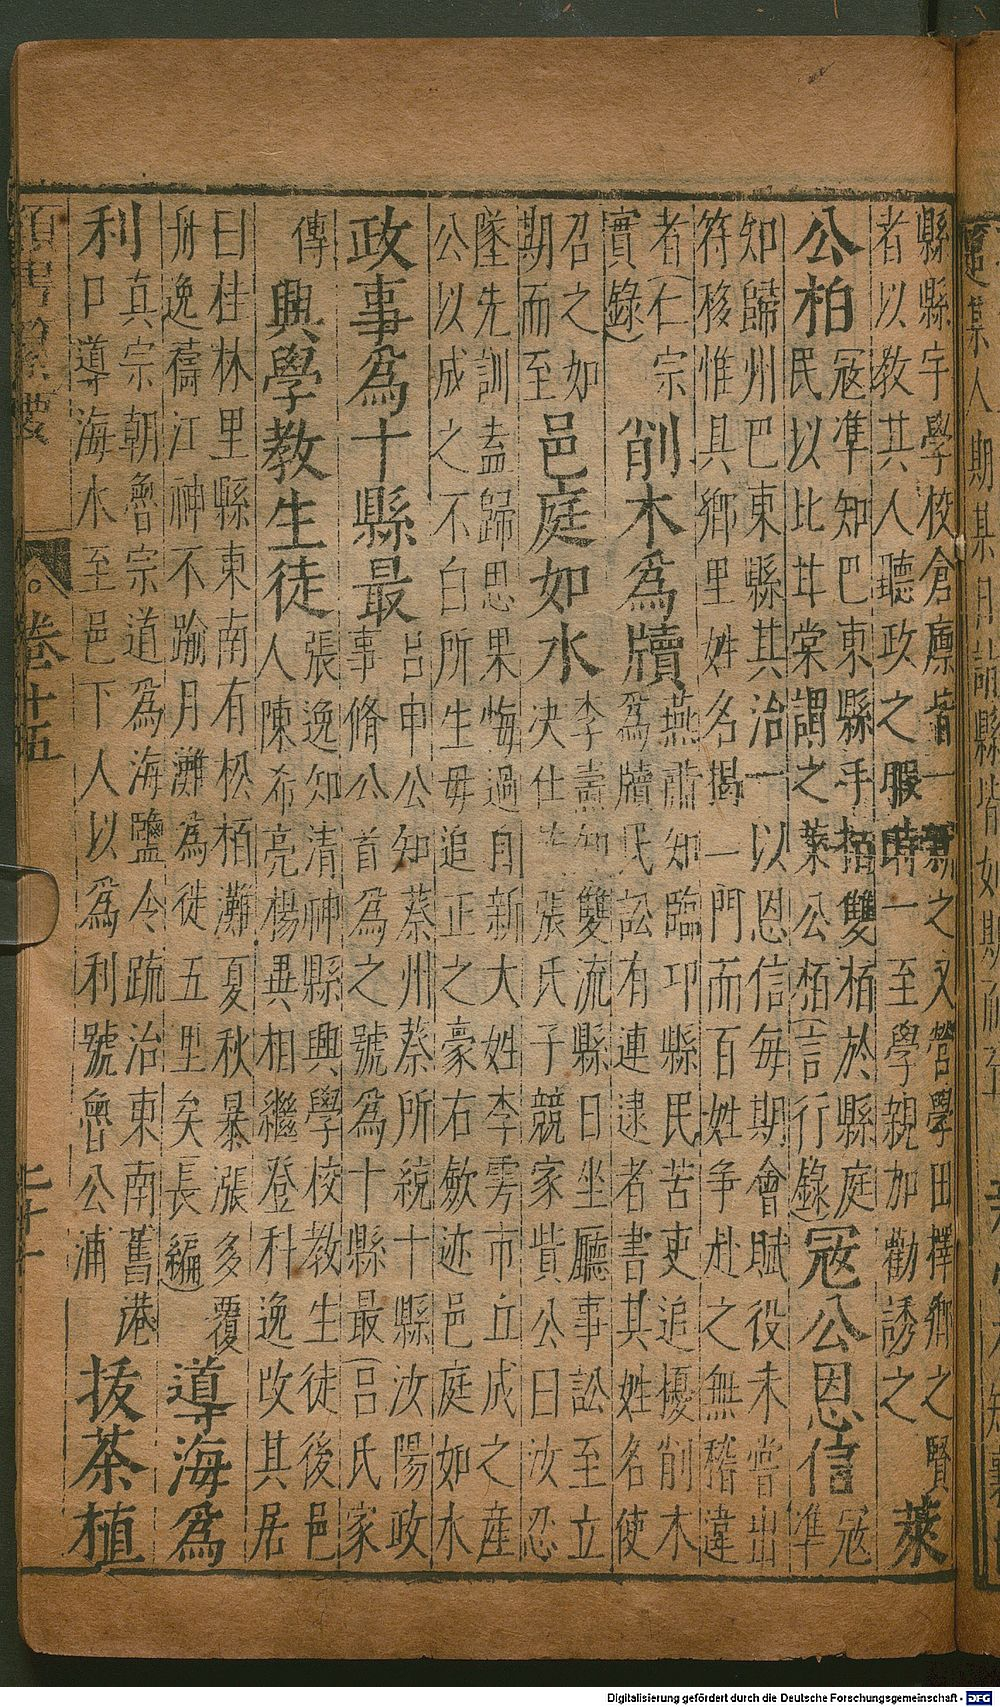 縣縣宇學校倉廪皆一新之又營學田擇鄉之賢
者以教其人聽政之暇時一至學親加勸誘之
萊
公柏
冦準知巴東縣手植雙栢於縣庭
民以比甘棠謂之萊公栢(言行錄)
冦公恩信
冦
準
知歸州巴東縣其治一以恩信每期會賦役未嘗出
符移惟具鄉里姓名揭一門而百姓争赴之無稽違
者(仁宗
實錄)
削木為牘
燕肅知臨卭縣民苦吏追擾削木
為牘民訟有連逮者書其姓名使
召之如
期而至
邑庭如水
李壽知雙流縣日坐廳事訟至立
決仕張氏子競家貲公曰汝忍
墜先訓盍歸思果悔過自新大姓李雱市丘成之産
公以成之不白所生毋追正之豪右歛迹邑庭如水
政事為十縣最
吕申公知蔡州蔡所統十縣汝陽政
事脩公首為之號為十縣最(吕氏家
傳
興學教生徒
張逸知清神縣興學校教生徒後邑
人陳希亮楊異相繼登科逸改其居
曰桂林里縣東南有松栢灘夏秋暴漲多覆
舟逸禱江神不踰月灘為徙五里矣(長編)
導海為
利
真宗朝魯宗道為海鹽令疏治東南舊港
口導海水至邑下人以為利號魯公浦
拔茶植
卷十五
Digitalisierung gefördert durch die Deutsche Forschungsgemeinschaft - DFG